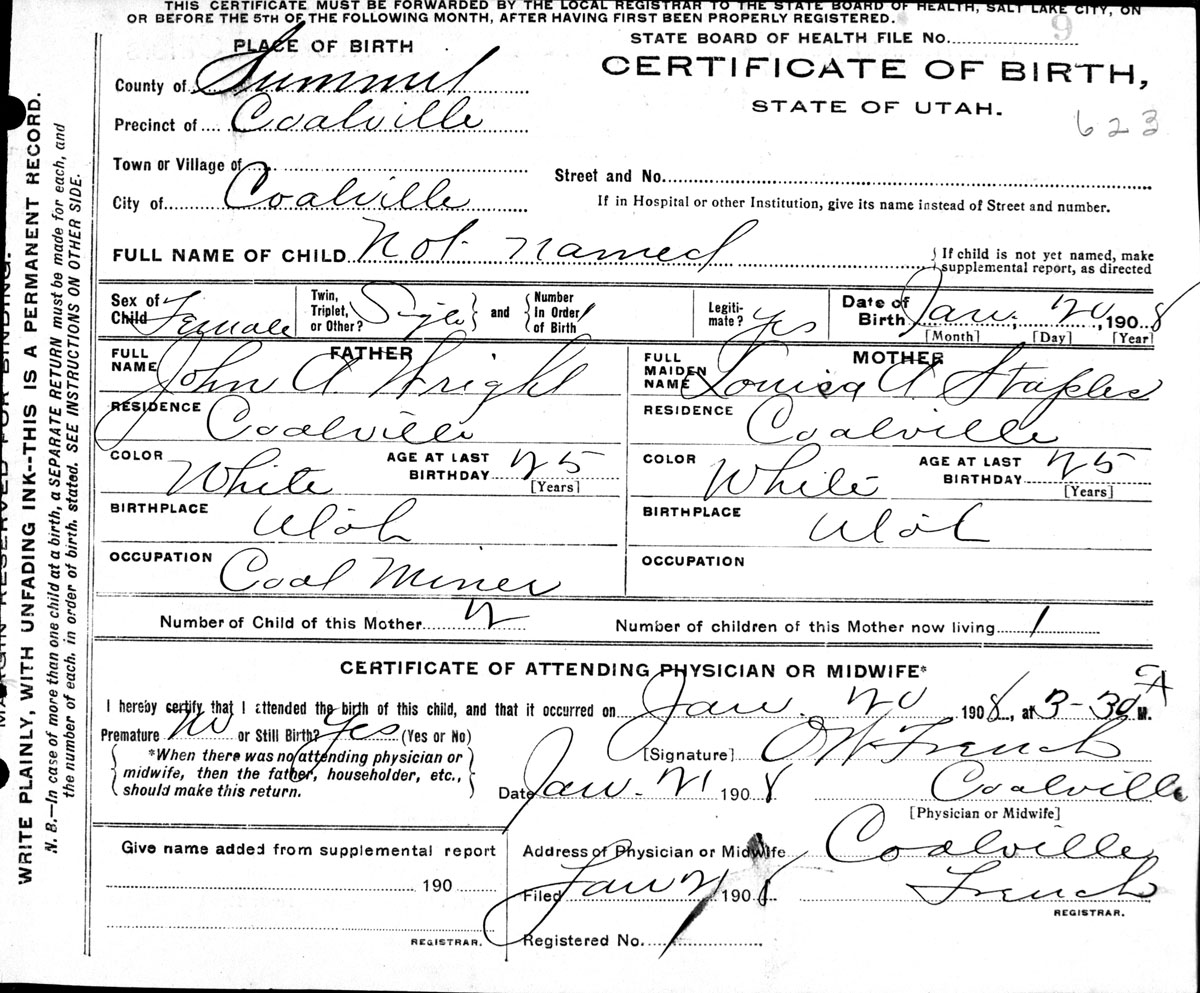 THIS CERTIFICATE MUST BE FORWARDED BY THE LOCAL REGISTRAR TO THE STATE BOARD OF HEALTH, SALT LAKE CITY, ON
OR BEFORE THE 5TH OF THE FOLLOWING MONTH, AFTER HAVING FIRST BEEN PROPERLY REGISTERED.
PLACE OF BIRTH
STATE BOARD OF HEALTH FILE NO. 9
CERTIFICATE OF BIRTH,
STATE OF UTAH.
623
County of Summit
Precinct of Coalville
Town or Village of
City of Coalville
Street and No.
If in Hospital or other Institution, give its name instead of Street and number.
FULL NAME OF CHILD Not named
If child is not yet named, make
supplemental report, as directed
Sex of Child Female
Twin, Triplet, or Other? Single and Number In Order of Birth 1
Legitimate? Yes
Date of Birth Jan. 20, 1908
[Month] [Day] [Year]
FATHER
FULL NAME John A Wright
RESIDENCE Coalville
COLOR White AGE AT LAST BIRTHDAY 25
[Years]
BIRTHPLACE Utah
OCCUPATION Coal Miner
MOTHER
FULL MAIDEN NAME Louisa A Staples
RESIDENCE Coalville
COLOR White AGE AT LAST BIRTHDAY 25
[Years]
BIRTHPLACE Utah
OCCUPATION
Number of Child of this Mother 2 Number of children of this Mother now living 1
CERTIFICATE OF ATTENDING PHYSICIAN OR MIDWIFE*
I hereby certify that I attended the birth of this child, and that it occurred on Jan. 20 1908, at 3-30 A M.
Premature No or Still Birth? Yes (Yes or No)
*When there was no attending physician or
midwife, then the father, householder, etc.,
should make this return.
[Signature] O W French
Date Jan. 21 1908 Coalville
[Physician or Midwife]
Give name added from supplemental report
190
REGISTRAR.
Address of Physician or Midwife Coalville
Filed Jan 21 1908 French
REGISTRAR.
Registered No. 1
MARGIN RESERVED FOR BINDING.
WRITE PLAINLY, WITH UNFADING INK--THIS IS A PERMANENT RECORD.
N. B.—In case of more than one child at a birth, a SEPARATE RETURN must be made for each, and
the number of each, in order of birth, stated. SEE INSTRUCTIONS ON OTHER SIDE.